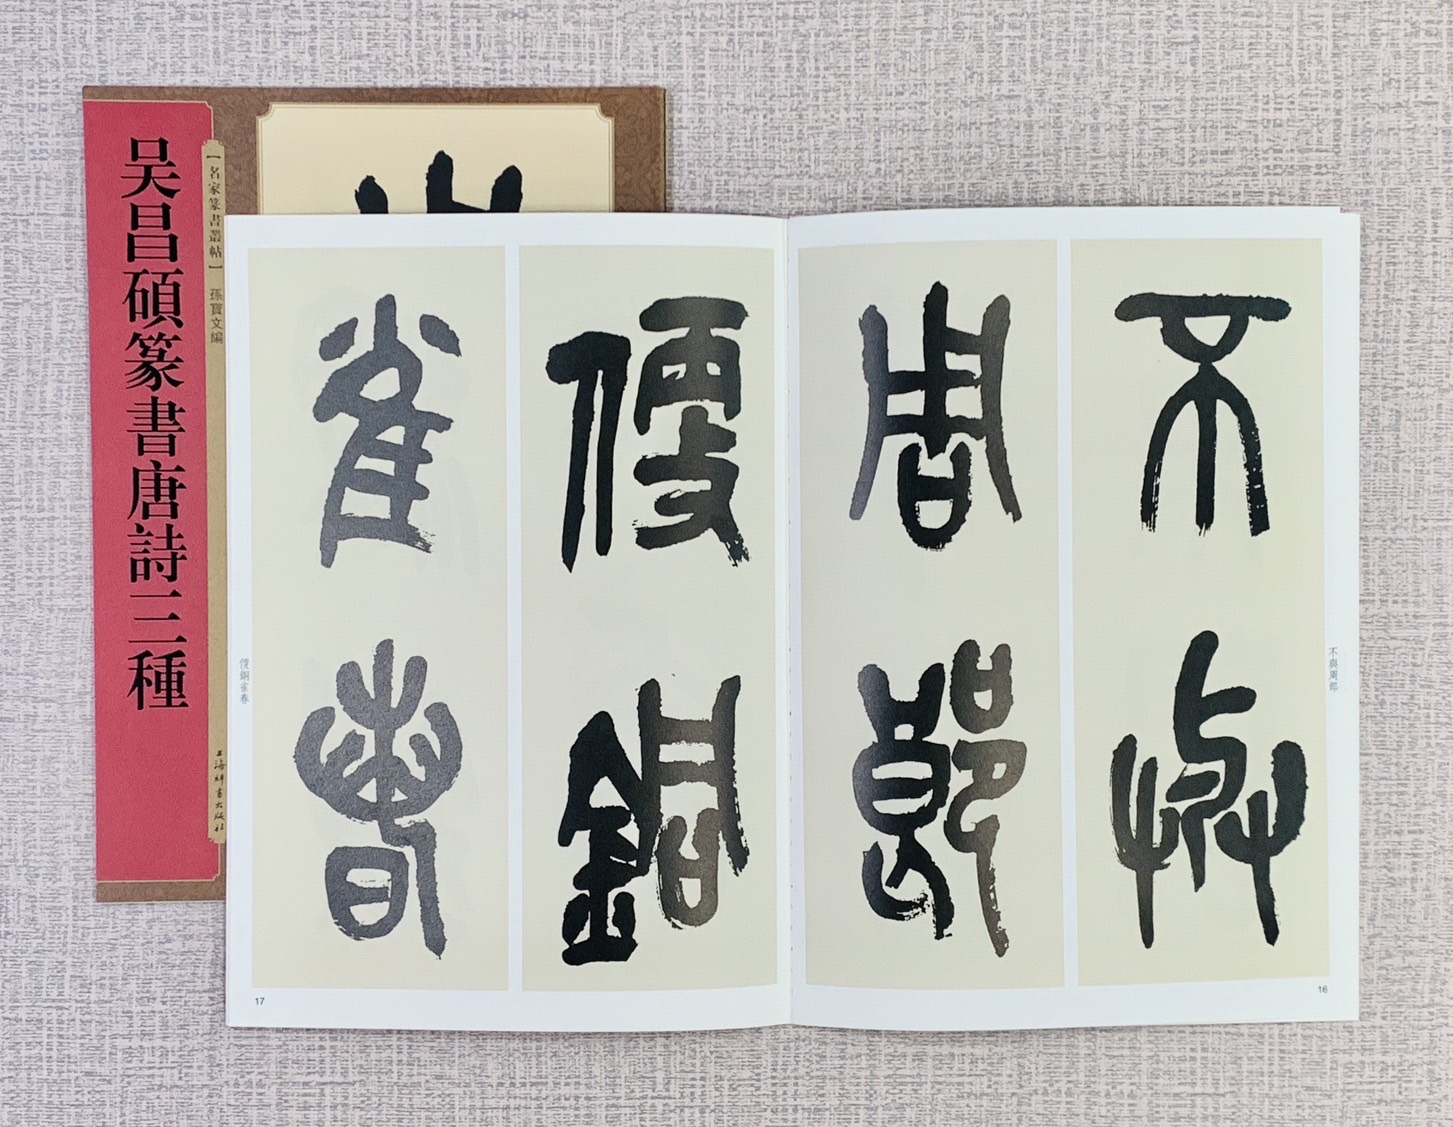 吴昌碩篆書唐詩三種
【名家篆書叢帖】 孫寶文編
上海辭書出版社
不與
周郎
便銅
雀春
不與周郎
便銅雀春
16
17